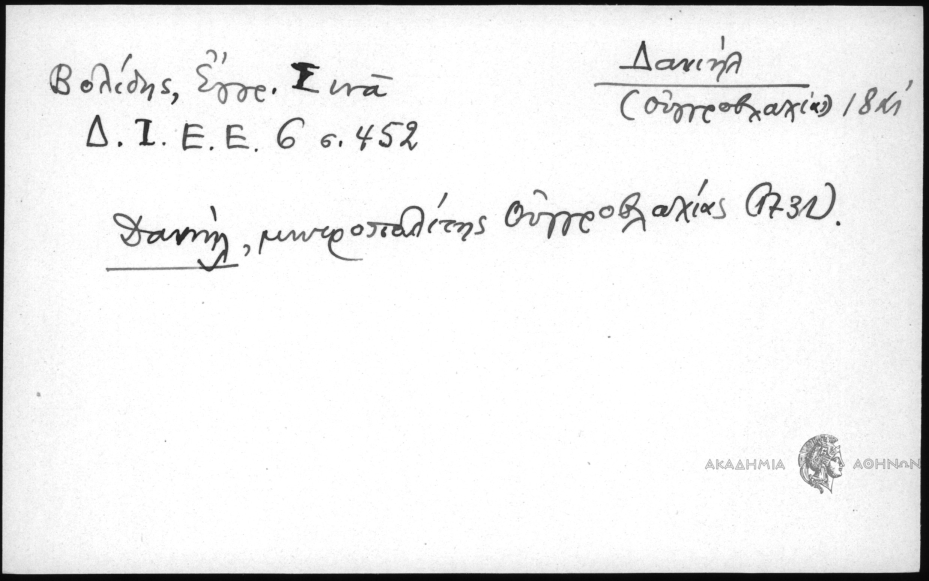 Βολίδης, Ἔγγρ. Σινᾶ
Δανιήλ
(Οὐγγροβλαχίας) 18
Δ. Ι. Ε. Ε. 6 σ. 452
Δανιήλ, μητροπολίτης Οὐγγροβλαχίας (1731).
ΑΚΑΔΗΜΙΑ ΑΘΗΝΩΝ